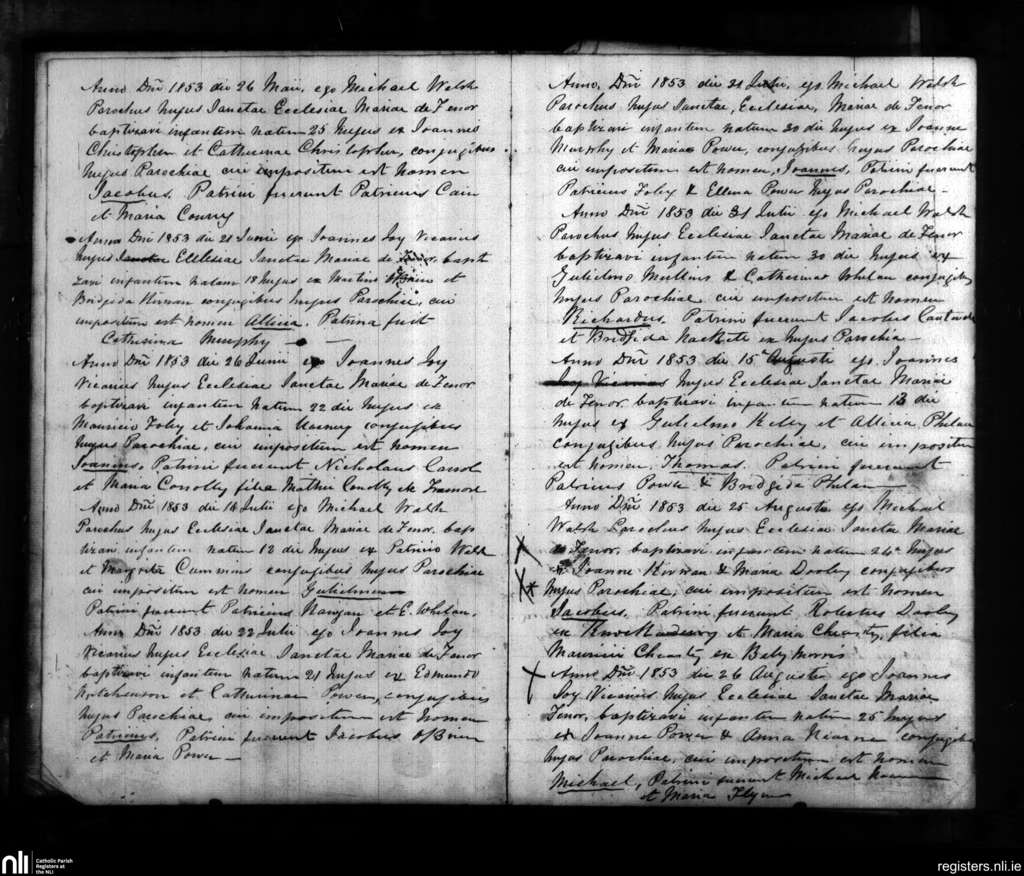 Anno Dni 1853 die 26 Maii, ego Michael Walsh
Parochus hujus Sanctae Ecclesiae Mariae de Fenor
baptizavi infantem natum 25 hujus ex Joannes
Christopher et Catherinae Christopher, conjugibus
hujus Parochiae cui impositum est nomen
Jacobus. Patrini fuerunt Patricius Cain
et Maria Conroy
Anno Dni 1853 die 21 Junii ego Joannes Joy Vicarius
hujus Ecclesiae Sanctae Mariae de Fenor bapti
zavi infantem natam 18 hujus ex Martino O'Brien et
Bridgida Kirwan conjugibus hujus Parochiae, cui
impositum est nomen Allicia. Patrina fuit
Catherina Murphy
Anno Dni 1853 die 26 Junii ego Joannes Joy
Vicarius hujus Ecclesiae Sanctae Mariae de Fenor
baptizavi infantem natum 22 die hujus ex
Mauricio Foley et Johanna conjugibus
hujus Parochiae, cui impositum est nomen
Joannes. Patrini fuerunt Nicholaus Carrol
et Maria Conolly filia Mathei Conolly de Tramore
Anno Dni 1853 die 16 Julii ego Michael Walsh
Parochus hujus Ecclesiae Sanctae Mariae de Fenor, bap
tizavi infantem natum 12 die hujus ex Patricio Walsh
et Margrita Cummins conjugibus hujus Parochiae
cui impositum est nomen Gulielmum
Patrini fuerunt Patricius et E. Whelan.
Anno Dni 1853 die 22 Julii ego Joannes Joy
Vicarius hujus Ecclesiae Sanctae Mariae de Fenor
baptizavi infantem natum 21 hujus ex Edmundo
Hutchenson et Catherinae Power, conjugibus
hujus Parochiae, cui impositum est nomen
Patricius. Patrini fuerunt Jacobus O'Brien
et Maria Power
Anno, Dni 1853 die 31 Julii, ego Michael Walsh
Parochus hujus Sanctae, Ecclesiae, Mariae de Fenor
baptizavi infantem natum 30 die hujus ex Joanne
Murphy et Mariae Power, conjugibus hujus Parochiae
cui impositum est nomen, Joannes, Patrini fuerunt
Patricius Foley & Ellena Power hujus Parochiae
Anno Dni 1853 die 31 Julii ego Michael Walsh
Parochus hujus Ecclesiae Sanctae Mariae de Fenor
baptizavi infantem natum 30 die hujus ex
Gulielmo Mullins & Catherinae Whelan conjugibus
hujus Parochiae cui impositum est nomen
Richardus. Patrini fuerunt Jacobus
et Bridgida Hackett ex hujus Parochia
Anno Dni 1853 die 15 Augusti ego Joannes
Joy Vicarius hujus Ecclesiae Sanctae Mariae
de Fenor baptizavi infantem natum 13 die
hujus ex Gulielmo Kelly et Allicia Phelan
conjugibus hujus Parochiae, cui impositum
est nomen, Thomas. Patrini fuerunt
Patricius Power & Bridgida Phelan
Anno Dni 1853 die 25 Augusti ego Michael
Walsh Parochus hujus Ecclesiae Sanctae Mariae
de Fenor, baptizavi infantem natum 24 hujus
ex Joanne Kirwan & Maria Dooley conjugibus
hujus Parochiae, cui impositum est nomen
Jacobus. Patrini fuerunt Robertus Dooley
ex et Maria Cheasty, filia
Mauricii Cheasty ex Ballymorris
Anno Dni 1853 die 26 Augusti ego Joannes
Joy Vicarius hujus Ecclesiae Sanctae Mariae
Fenor, baptizavi infantem natum 25 hujus
ex Joanne Power & Anna conjugibus
hujus Parochiae, cui impositum est nomen
Michael, Patrini fuerunt Michael
et Maria Flynn
nli
Catholic Parish
Registers at
the NLI
registers.nli.ie